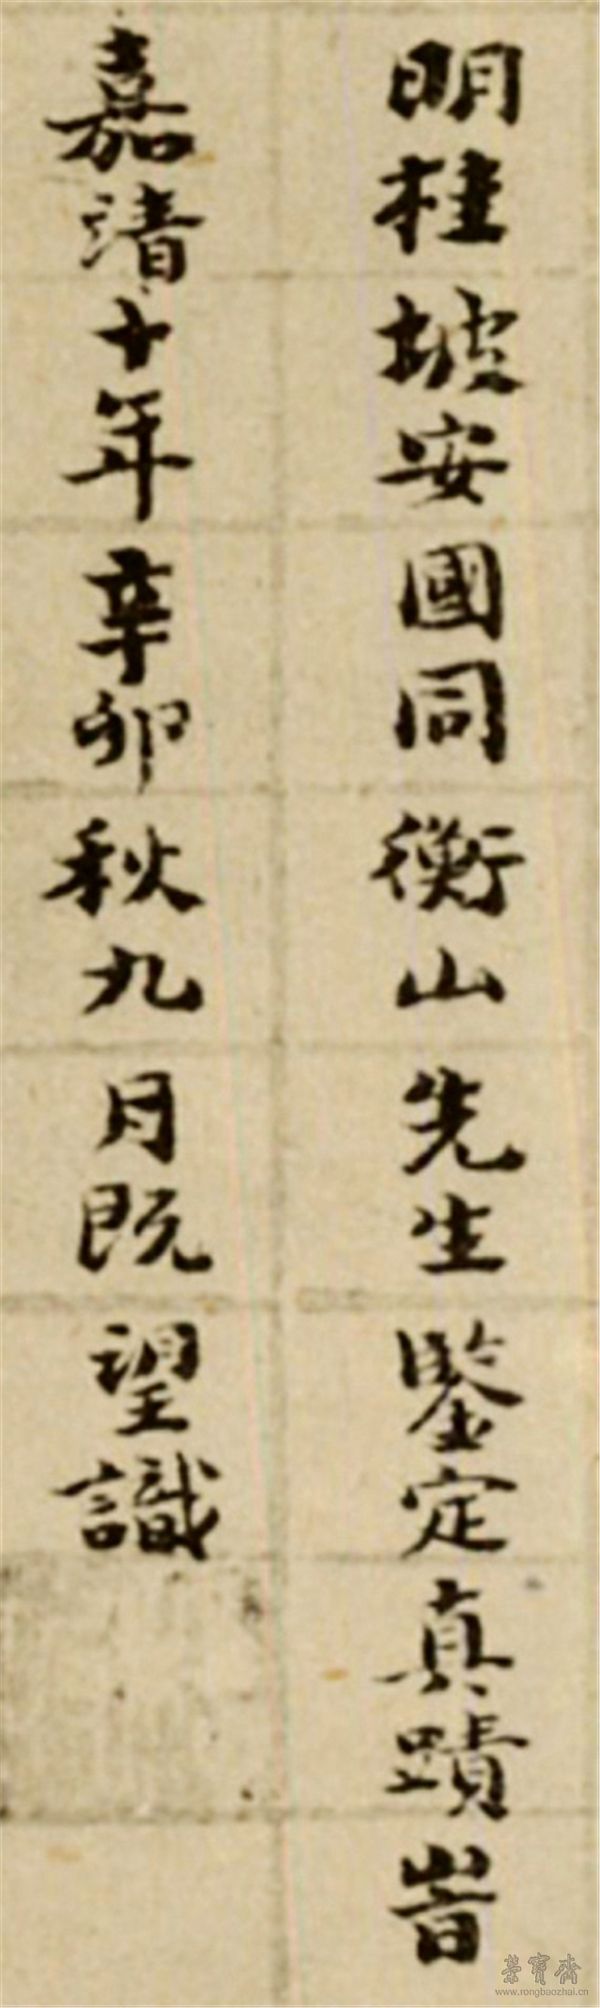 明桂坡安國同衡山先生鑒定真蹟旹
嘉清十年辛卯秋九月既望識
榮寶齋
www.rongbaozhai.cn